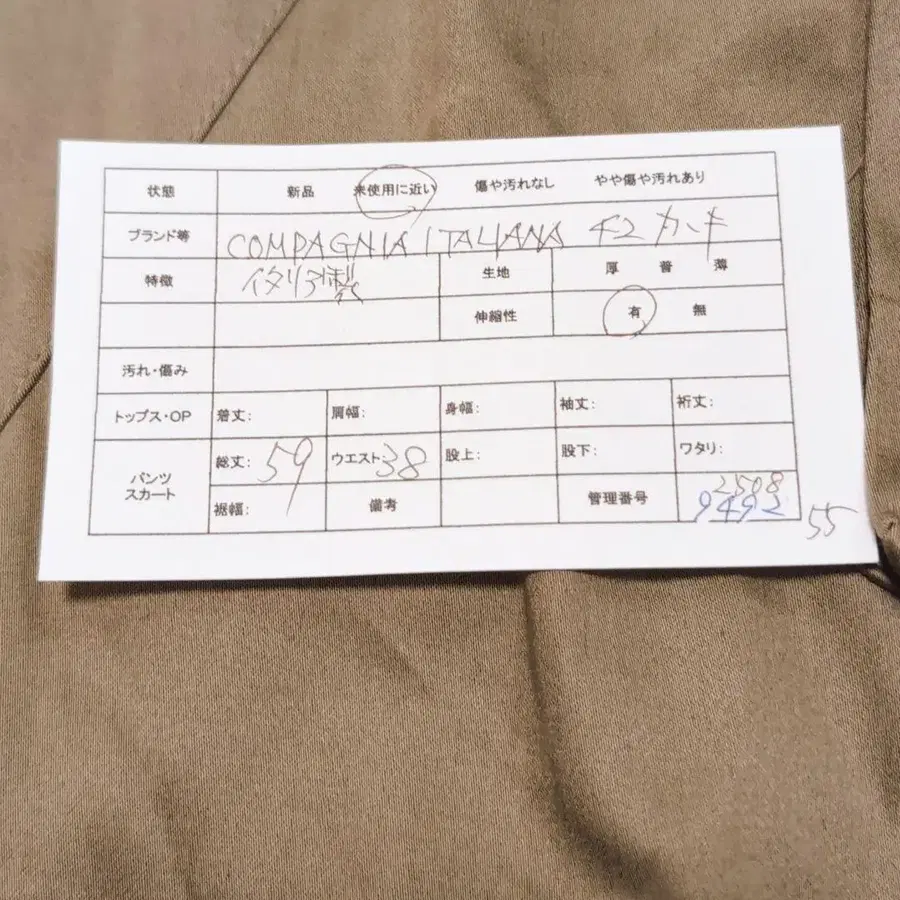 状態 新品 未使用に近い 傷や汚れなし やや傷や汚れあり
ブランド等 COMPAGNIA ITALIANA 42 カーキ
特徴 イタリア製 生地 厚 普 薄
伸縮性 有 無
汚れ・傷み
トップス・OP 着丈: 肩幅: 身幅: 袖丈: 裄丈:
パンツ
スカート
総丈: 59 ウエスト 38 股上: 股下: ワタリ:
裾幅: 備考 管理番号 2508
9492
55